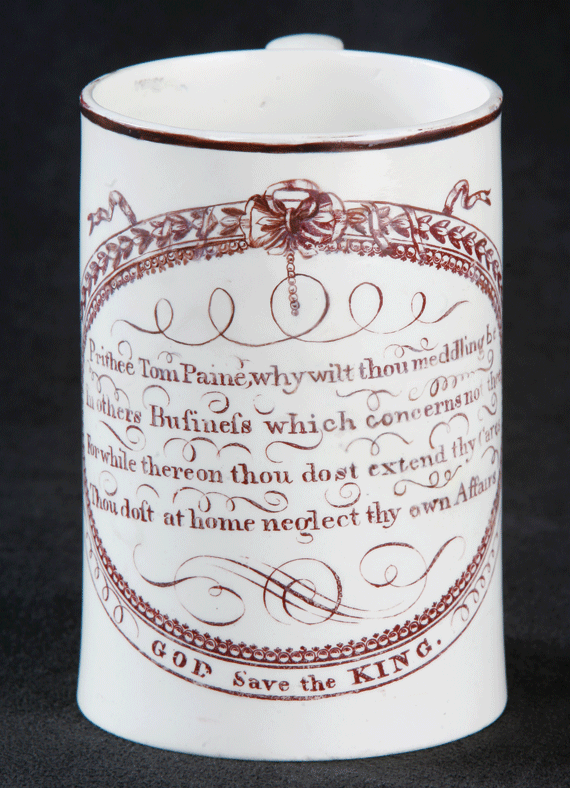 Prithee Tom Paine, why wilt thou meddling be
In others Buſineſs which concerns not thee
For while thereon thou dost extend thy Cares
Thou doſt at home neglect thy own Affairs
GOD Save the KING.